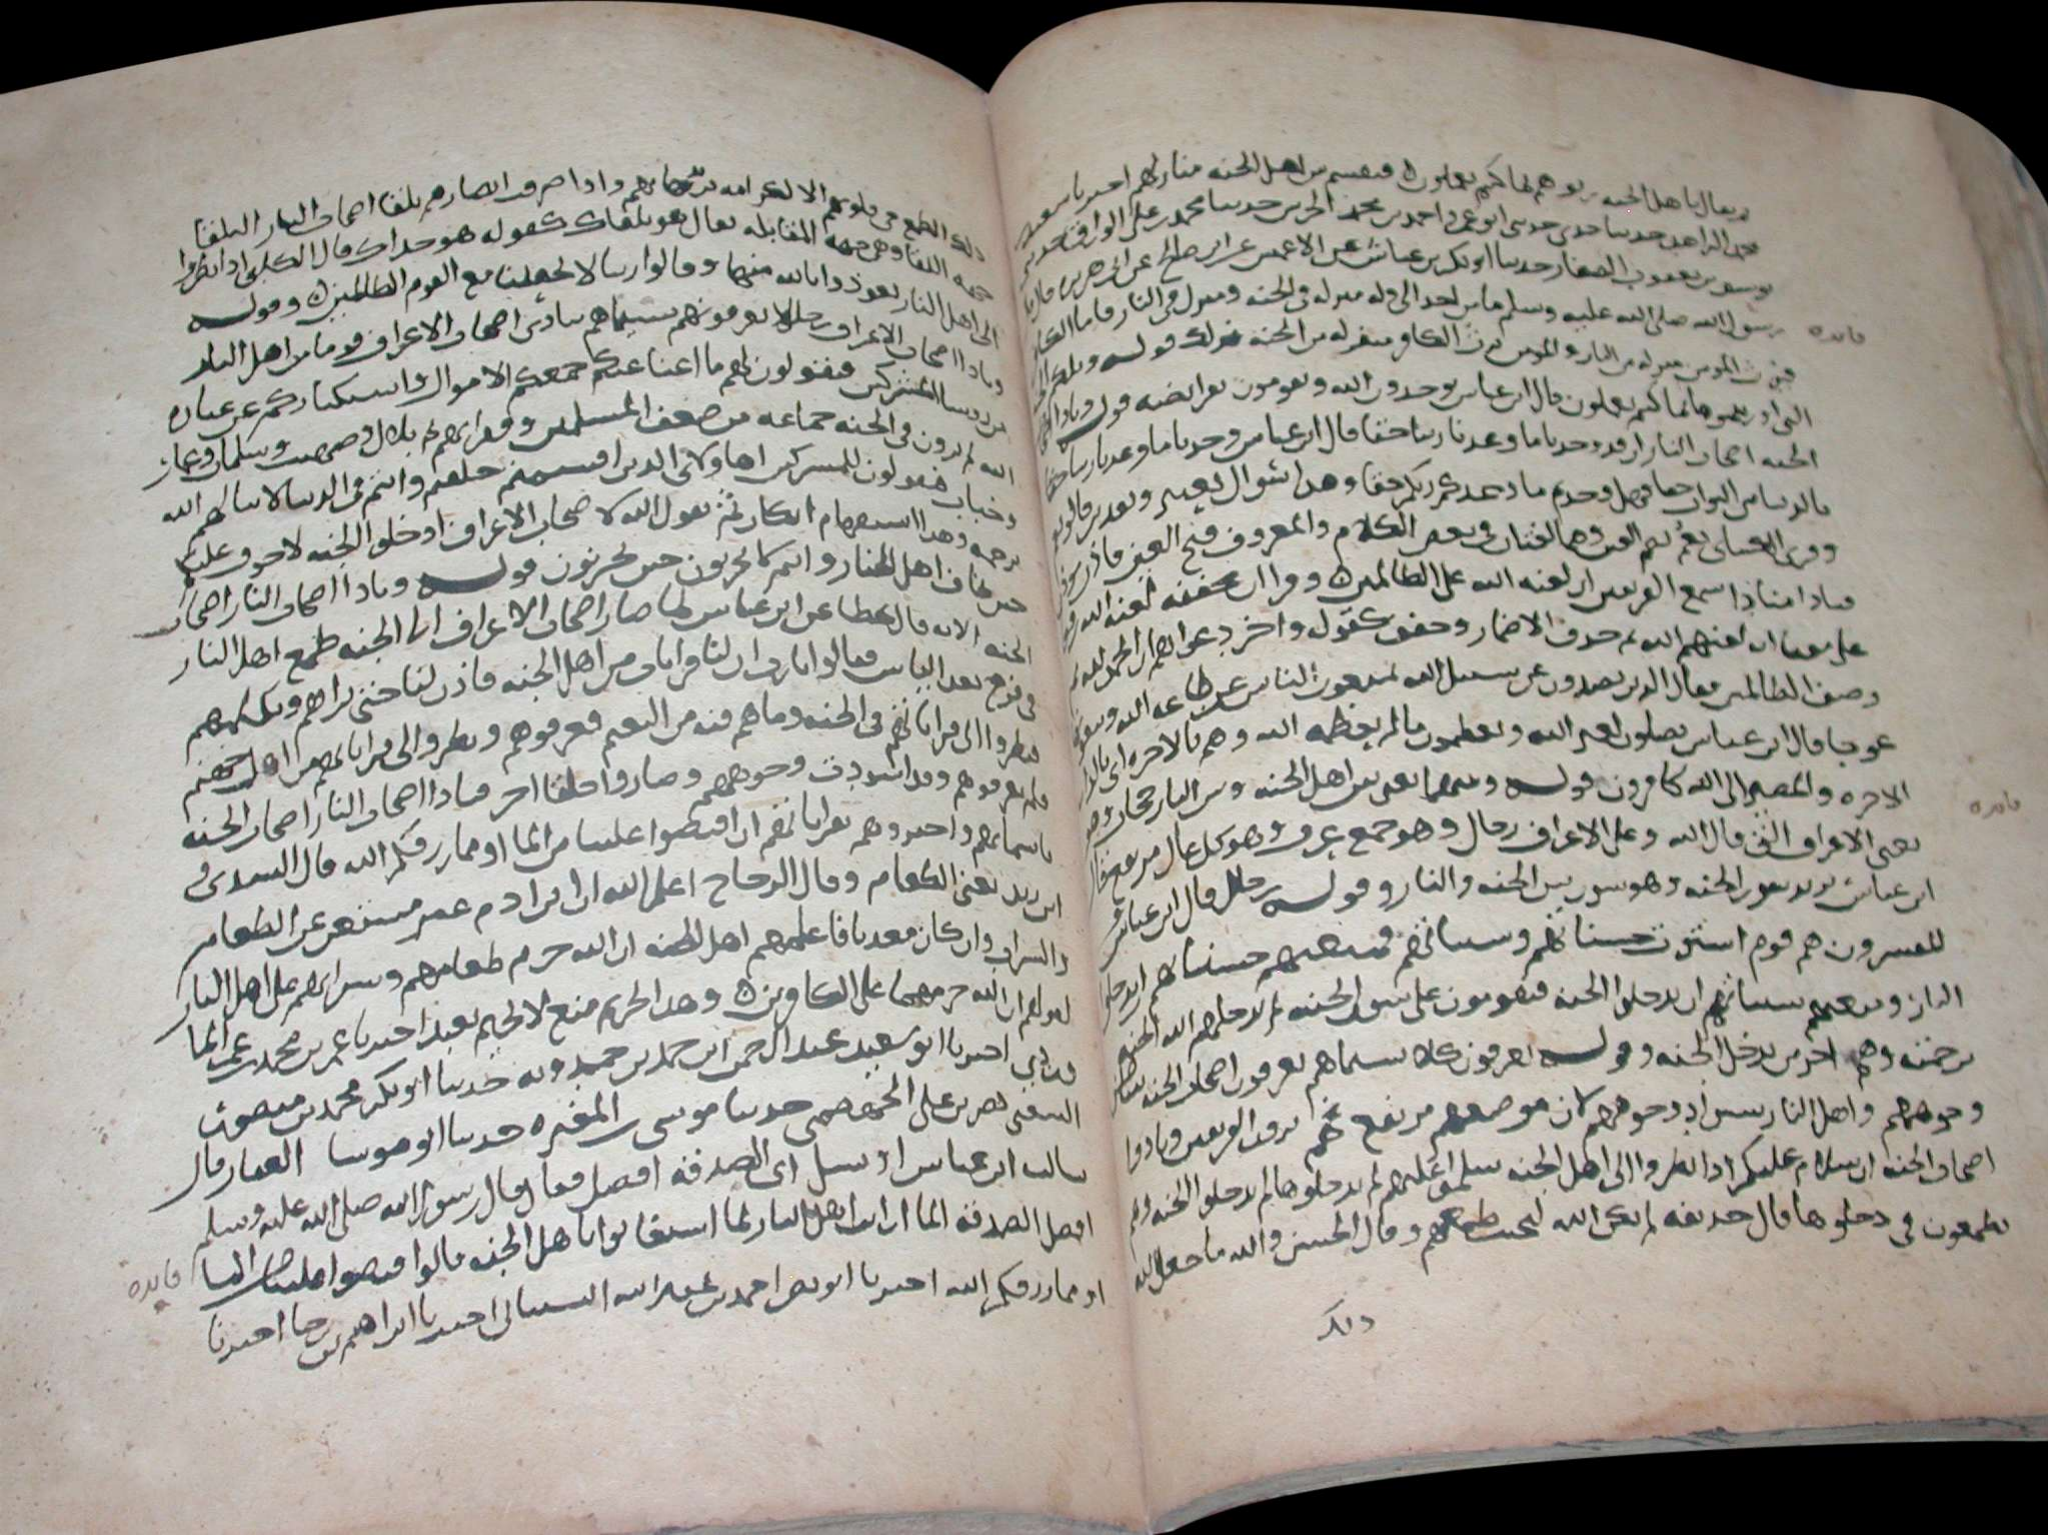 ثم يقال يا اهل الجنه رثوهم بما كنتم تعملون فيقسم بين اهل الجنه منازلهم اخبرنا سعيد
محمد الزاهد حدثنا جدى حدثنى ابو عمرو احمد بن محمد الحرسى حدثنا محمد بن على الوراق
يوسف بن يعقوب الصفار حدثنا ابو بكر بن عياش عن الاعمش عن ابى صالح عن ابى هريره قال قال
رسول الله صلى الله عليه وسلم ما من احد الا وله منزله فى الجنه ومنزل فى النار فاما الكافر
فيرث المومن منزله من النار والمومن يرث الكافر منزله من الجنه فذلك قوله وتلكم الجنه
التى اورثتموها بما كنتم تعملون قال ابن عباس يوحدون الله ويقومون بفرايضه قوله ونادا
الجنه اصحاب النار ان قد وجدنا ما وعدنا ربنا حقا قال ابن عباس وجدنا ما وعدنا ربنا
فى الدنيا من الثواب حقا فهل وجدتم ما وعدكم ربكم حقا وهذا سوال تعيير وتقرير قالوا نعم
وقرى الكسائى نعم بكسر العين وهما لغتان فى بعض الكلام والمعروف فتح العين فاذن موذن
فنادا مناد اسمع الفريقين ان لعنه الله على الظالمين وقرا ان مخففه لعنه الله
على معنا انه لعنهم الله ثم حذف الاضمار وخفف كقوله واخر دعواهم ان الحمد لله
وصف الظالمين فقال الذين يصدون عن سبيل الله يمنعون الناس عن طاعه الله ويبغونها
عوجا قال ابن عباس يصلون لغير الله ويعظمون ما لم يعظمه الله وهم بالاخره اى بالدار
الاخره والمصير الى الله كافرون قوله وبينهما يعنى بين اهل الجنه وبين النار حجاب وهى
يعنى الاعراف التى قال الله وعلى الاعراف رجال وهو جمع عرف وهو كل عال مرتفع قال
ابن عباس يريد سور الجنه وهو سور بين الجنه والنار وقوله رجال قال ابن عباس
المفسرون هم قوم استوت حسناتهم وسياتهم فمنعتهم حسناتهم ان يدخلوا
النار ومنعتهم سياتهم ان يدخلوا الجنه فيقومون على سور الجنه ثم يدخلهم الله الجنه
برحمته وهم اخر من يدخل الجنه وقوله يعرفون كلا بسيماهم يعرفون اصحاب الجنه ببياض
وجوههم واهل النار بسواد وجوههم لان موضعهم مرتفع فهم يرون الفريقين ونادوا
اصحاب الجنه ان سلام عليكم اذا نظروا الى اهل الجنه سلموا عليهم لم يدخلوها لم يدخلوا الجنه وهم
يطمعون فى دخولها قال حذيفه لم يكن الله ليخيب طمعهم وقال الحسن والله ما جعل الله
ذلك
فايده
فايده
ذلك الطمع فى قلوبهم الا لكرامه يريدها بهم واذا صرفت ابصارهم تلقا اصحاب النار التلقا
جهه اللقا وهى جهه المقابله يقال هو تلقاك كقوله هو حذاك قال الكلبى اذا نظروا
الى اهل النار تعوذوا بالله منهما وقالوا ربنا لا تجعلنا مع القوم الظالمين وقوله
ونادا اصحاب الاعراف رجالا يعرفونهم بسيماهم ينادى اصحاب الاعراف قوما من اهل النار
من روسا المشركين فيقولون لهم ما اغنا عنكم جمعكم الاموال واستكباركم عن عباده
الله ثم يرون فى الجنه جماعه من ضعفا المسلمين وفقرايهم ثم بلال وصهيب وسلمان وعمار
وخباب فيقولون للمشركين اهاولاى الذين اقسمتم حلفتم وانتم فى الدنيا لا ينالهم الله
برحمه وهذا استفهام انكار ثم يقول الله لاصحاب الاعراف ادخلوا الجنه لا خوف عليكم
حين يخاف اهل النار ولا انتم تحزنون حين يحزنون قوله ونادا اصحاب النار اصحاب
الجنه الايه قال عطا عن ابن عباس لما صار اصحاب الاعراف الى الجنه طمع اهل النار
فى فرج بعد الياس فقالوا يا رب ان لنا قرابات من اهل الجنه فاذن لنا حتى نراهم ونكلمهم
فنظروا الى قراباتهم فى الجنه وما هم فيه من النعيم فعرفوهم ونظروا الى قراباتهم من اهل جهنم
فلم يعرفوهم وقد اسودت وجوههم وصاروا خلقا اخر فنادا اصحاب النار اصحاب الجنه
باسمايهم واخبروهم بقراباتهم ان افيضوا علينا من الما او مما رزقكم الله قال السدى
ابن زيد يعنى الطعام وقال الزجاج اعلم الله ان ابن ادم غير مستغن عن الطعام
والشراب وان كان معذبا فاعلمهم اهل الجنه ان الله حرم طعامهم وشرابهم على اهل النار
بقولهم ان الله حرمهما على الكافرين وهذا تحريم منع لا تحريم تعبد اخبرنا عمر بن محمد بن عمر
اخبرنا ابو سعيد عبد الرحمن ابن حمد بن حمدويه حدثنا ابو بكر محمد بن
نصر بن على الجهضمى حدثنا موسى بن المغيره حدثنا ابو موسا الصفار قال
سالت ابن عباس او سيل اى الصدقه افضل فقال قال رسول الله صلى الله عليه وسلم
افضل الصدقه الما ان رايت اهل النار لما استغاثوا باهل الجنه قالوا افيضوا علينا من الما
او مما رزقكم الله اخبرنا ابو نصر احمد بن عبيد الله اخبرنا ابراهيم بن رجا اخبرنا
فايده